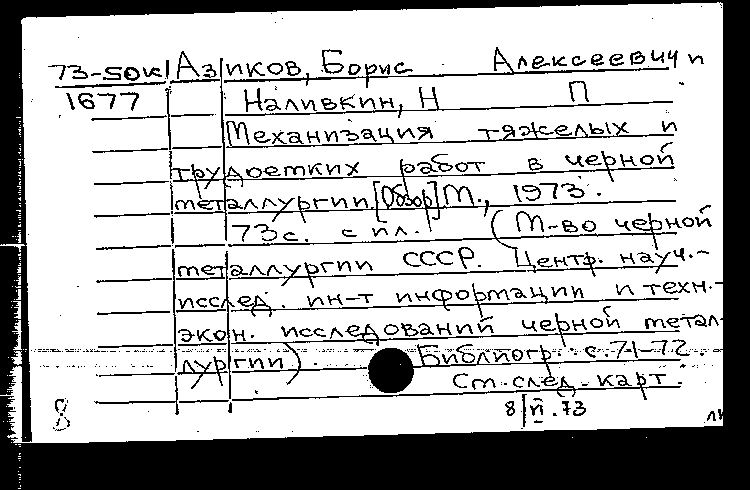 73-50к Азиков, Борис Алексеевич и
1677 Наливкин, Н П
Механизация тяжелых и
трудоемких работ в черной
металлургии. [Обзор] М., 1973.
73с. с ил. (М-во черной
металлургии СССР. Центр. науч.-
исслед. ин-т информации и техн.-
экон. исследований черной метал-
лургии). Библиогр.: с. 71-72.
См. след. карт.
8 8/II.73